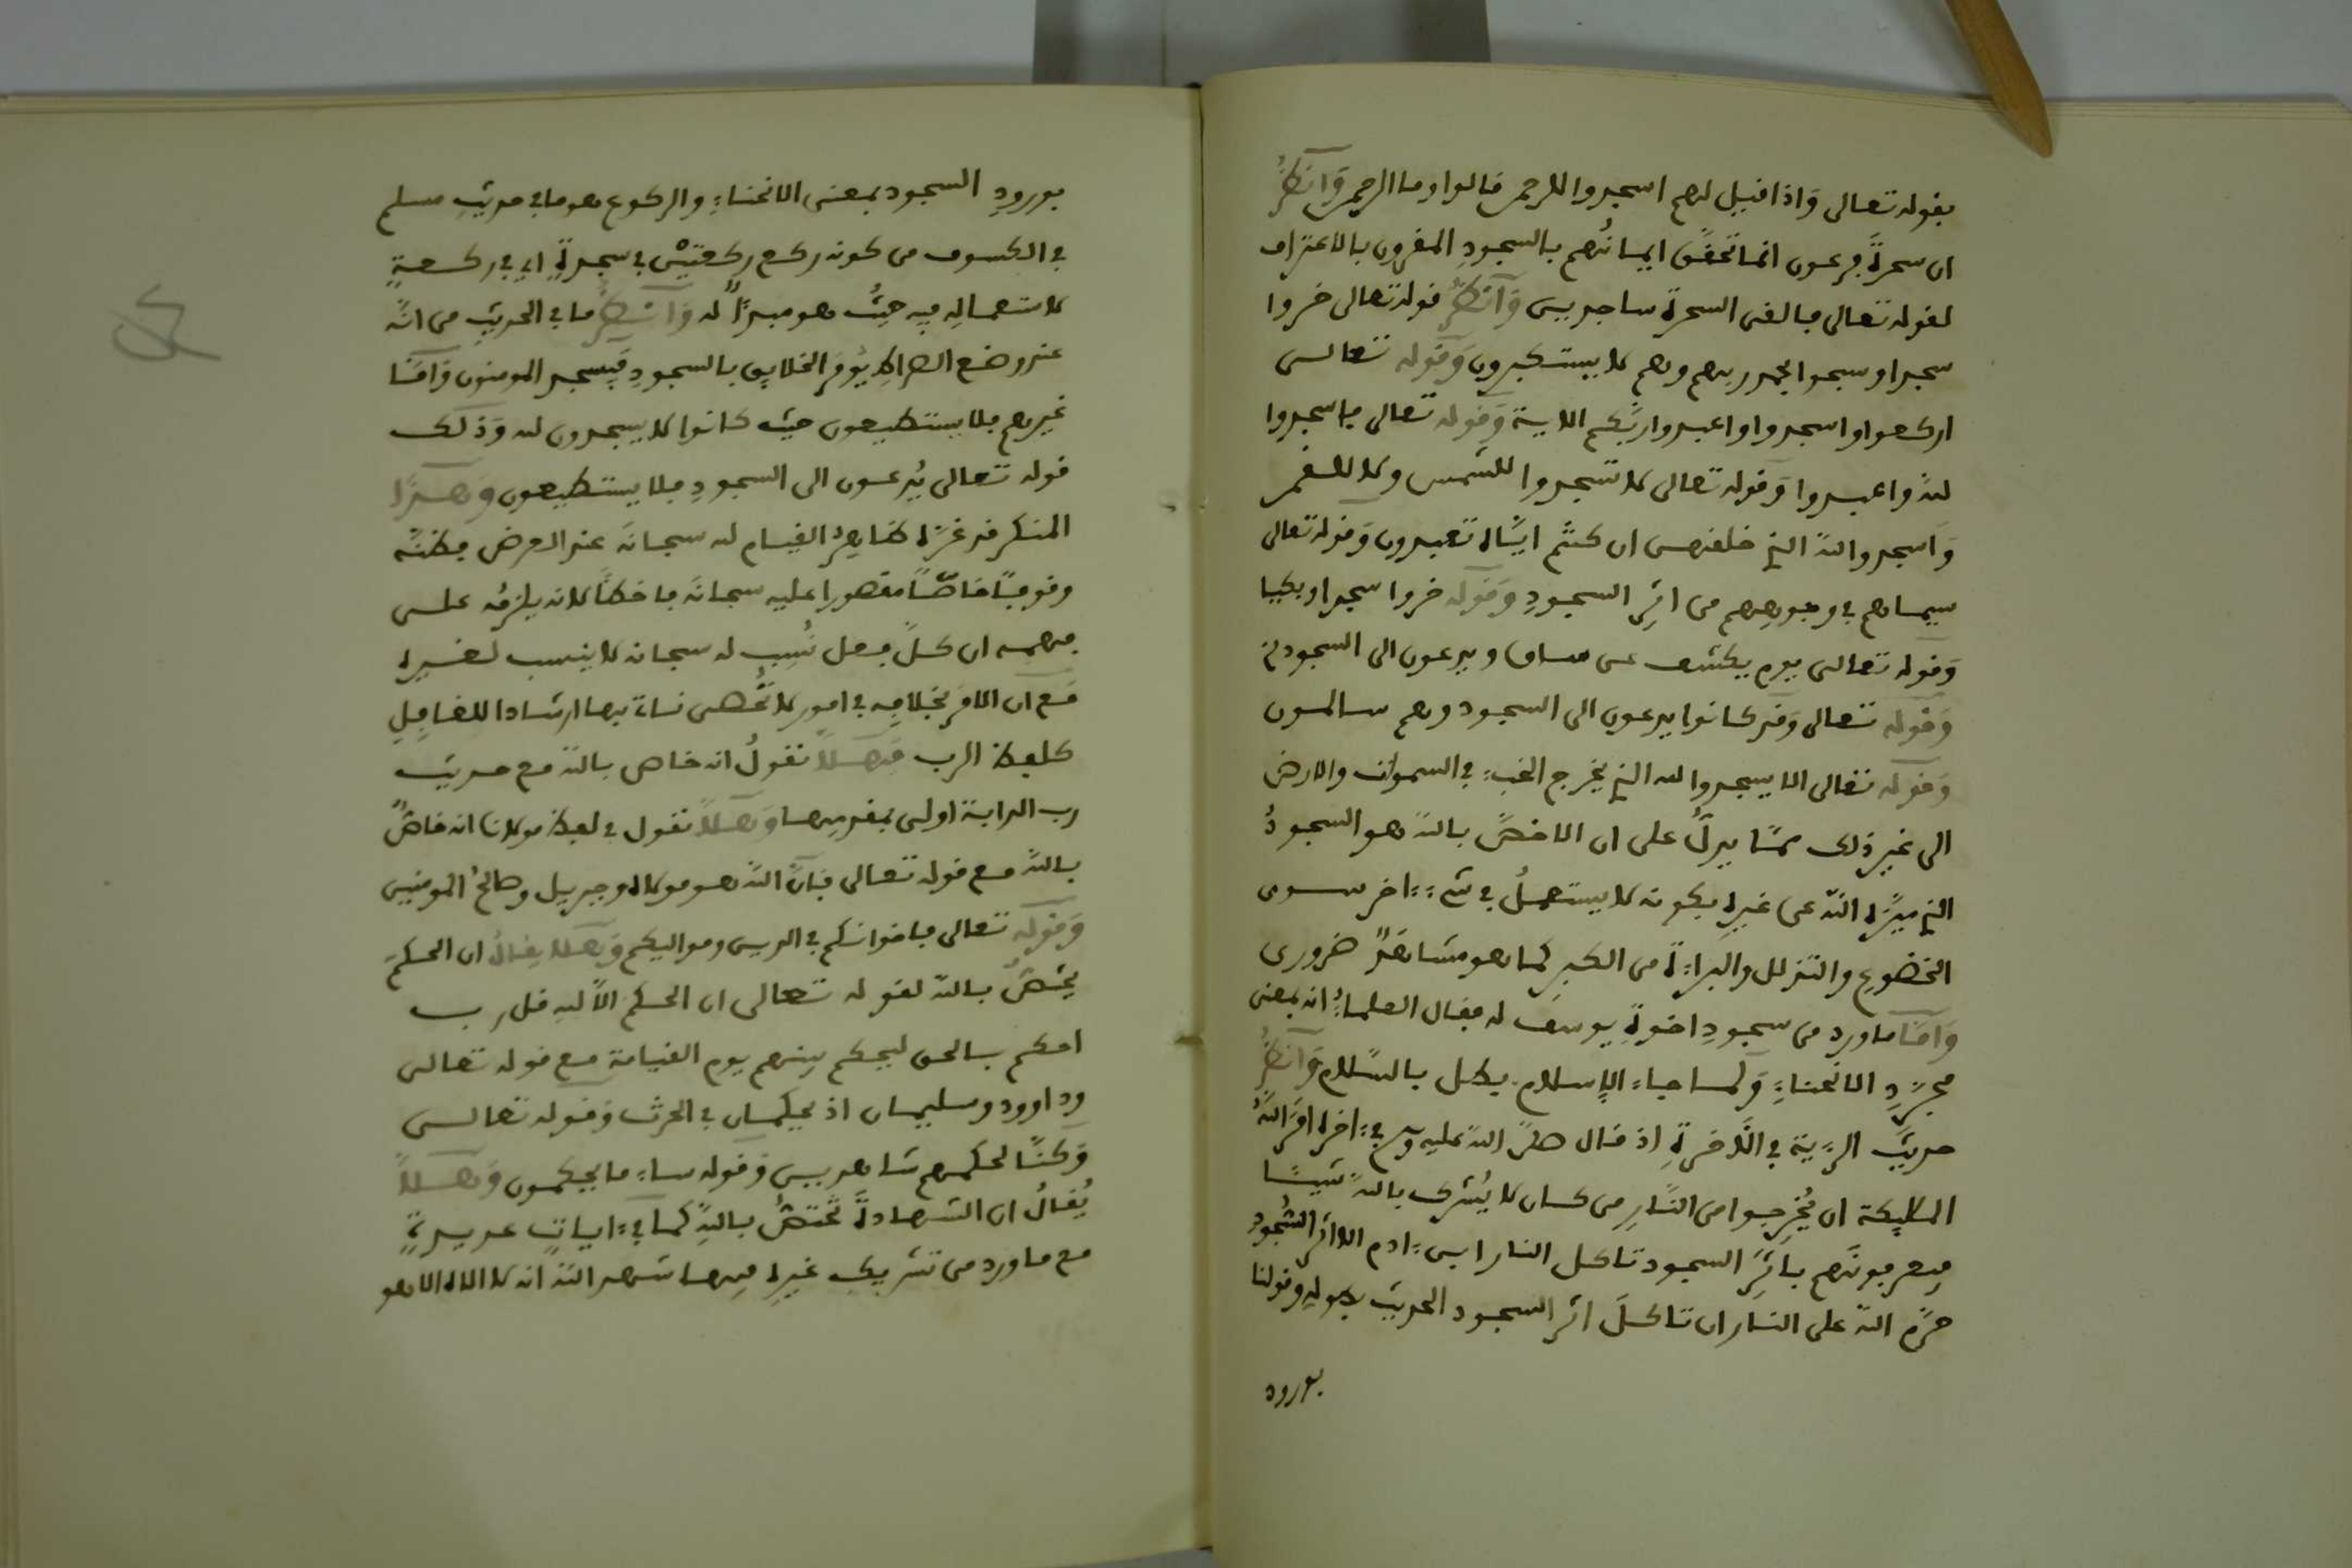 بقوله تعالى وَاذا قيل لهم اسجدوا للرحمن قالوا وما الرحمن وَانظرْ
ان سحرةَ فرعون انما تحقّق ايمانُهم بالسجودِ المقرون بالاعتراف
لقوله تعالى فالقى السحرة ساجدين وَانظرْ قوله تعالى خروا
سجدا وسبحوا بحمد ربهم وهم لا يستكبرون وَقوله تعالى
اركعوا واسجدوا واعبدوا ربّكم الاية وَقوله تعالى فاسجدوا
للهِ واعبدوا وَقوله تعالى لا تسجدوا للشمس ولا للقمر
وَاسجدوا للهِ الذي خلقهن ان كنتم ايّاه تعبدون وَقوله تعالى
سيماهم في وجوههم من اثرِ السجودِ وَقوله خروا سجدا وبكيا
وَقوله تعالى يوم يكشف عن ساق ويدعون الى السجود
وَقوله تعالى وَقد كانوا يدعون الى السجود وهم سالمون
وَقوله تعالى الا يسجدوا لله الذي يخرج الخبء في السموات والارض
الى غيرِ ذلك ممّا يدلُّ على ان الاخصّ باللهِ هو السجودُ
الذي ميّزه اللهُ عن غيرِه بكونه لا يستعملُ في شيء ءاخر سوى
الخضوعِ والتذلل والبراءةِ من الكبرِ كما هو مشاهَدٌ ضروري
وَامّا ما ورد من سجودِ اخوةِ يوسفَ له فقال العلماءُ انه بمعنى
مجرّدِ الانحناءِ وَلما جاء الإسلام بطل بالسّلام وَانظرْ
حديثَ الرّؤية في الآخرةِ اذ قال صلّى اللهُ عليه وسلم في ءاخره امَرَ اللهُ
المليكة ان يُخرِجوا من النّارِ من كان لا يُشرك باللهِ شيئًا
فيعرفونَهم باثَرِ السجود تاكل النار ابن ءادم الا اثرَ السُّجودِ
حرّم اللهُ على النار ان تاكلَ اثر السجود الحديث بطوله وقولنا
بورود
بورودِ السجود بمعنى الانحناءِ والركوع هو ما في حديثِ مسلم
في الكسوف من كونه ركع ركعتيْن في سجدةٍ اي في ركعةٍ
لاستعمالِه فيه حيثُ هو مبدأٌ له وَانظرْ ما في الحديثِ من انّه
عند وضع الصراطِ يُؤمَر الخلايق بالسجودِ فَيسجد المومنون وَامّا
غيرهم فلا يستطيعون حيث كانوا لا يسجدون لله وَذلك
قوله تعالى يُدعون الى السجودِ فلا يستطيعون وَهذا
المنكر قد غرّه ظاهِرُ القيام لله سبحانَه عند العرض فظنّه
وقوفًا خاصًّا مقصورا عليه سبحانَه فاخطأ لانه يلزمُه على
فهمه ان كلّ فعل نُسِب له سبحانه لا ينسب لغيره
مَع ان الامرَ بخلافِه في امورٍ لا تُحصى ناتي بها ارشادا للغافلِ
كلفظ الرب فَهلاّ تقولُ انه خاص باللهِ مع حديث
رب الدابة اولى بمقدمِها وَهلاّ تقول في لفظ مولانا انه خاصٌّ
باللهِ مع قوله تعالى فإنّ اللهَ هو مولاه وجبريل وصالحُ المومنين
وَقوله تعالى فاخوانكم في الدين ومواليكم وَهلا يقالُ ان الحكمَ
يختصُّ باللهِ لقوله تعالى ان الحكم الاّ للهِ قل رب
احكم بالحق ليحكم بينهم يوم القيامة مع قوله تعالى
وداوود وسليمان اذ يحكمان في الحرث وَقوله تعالى
وَكنّا لحكمهم شاهدين وَقوله ساء ما يحكمون وَهلاّ
يُقالُ ان الشهادةَ تختصُّ باللهِ كما في ءاياتٍ عديدةٍ
مع ما ورد من تشريكِ غيرِه فيها شهد اللهُ انه لا اله الا هو